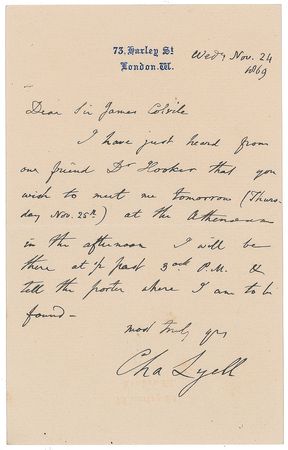 73, Harley St
London. W.
Wedy Nov. 24
1869
Dear Sir James Colvile
I have just heard from
our friend Dr Hooker that you
wish to meet me tomorrow (Thurs-
day Nov. 25th) at the Athenæum
in the afternoon I will be
there at ½ past 3 ock P.M. &
tell the porter where I am to be
found—
most truly yrs
Cha Lyell